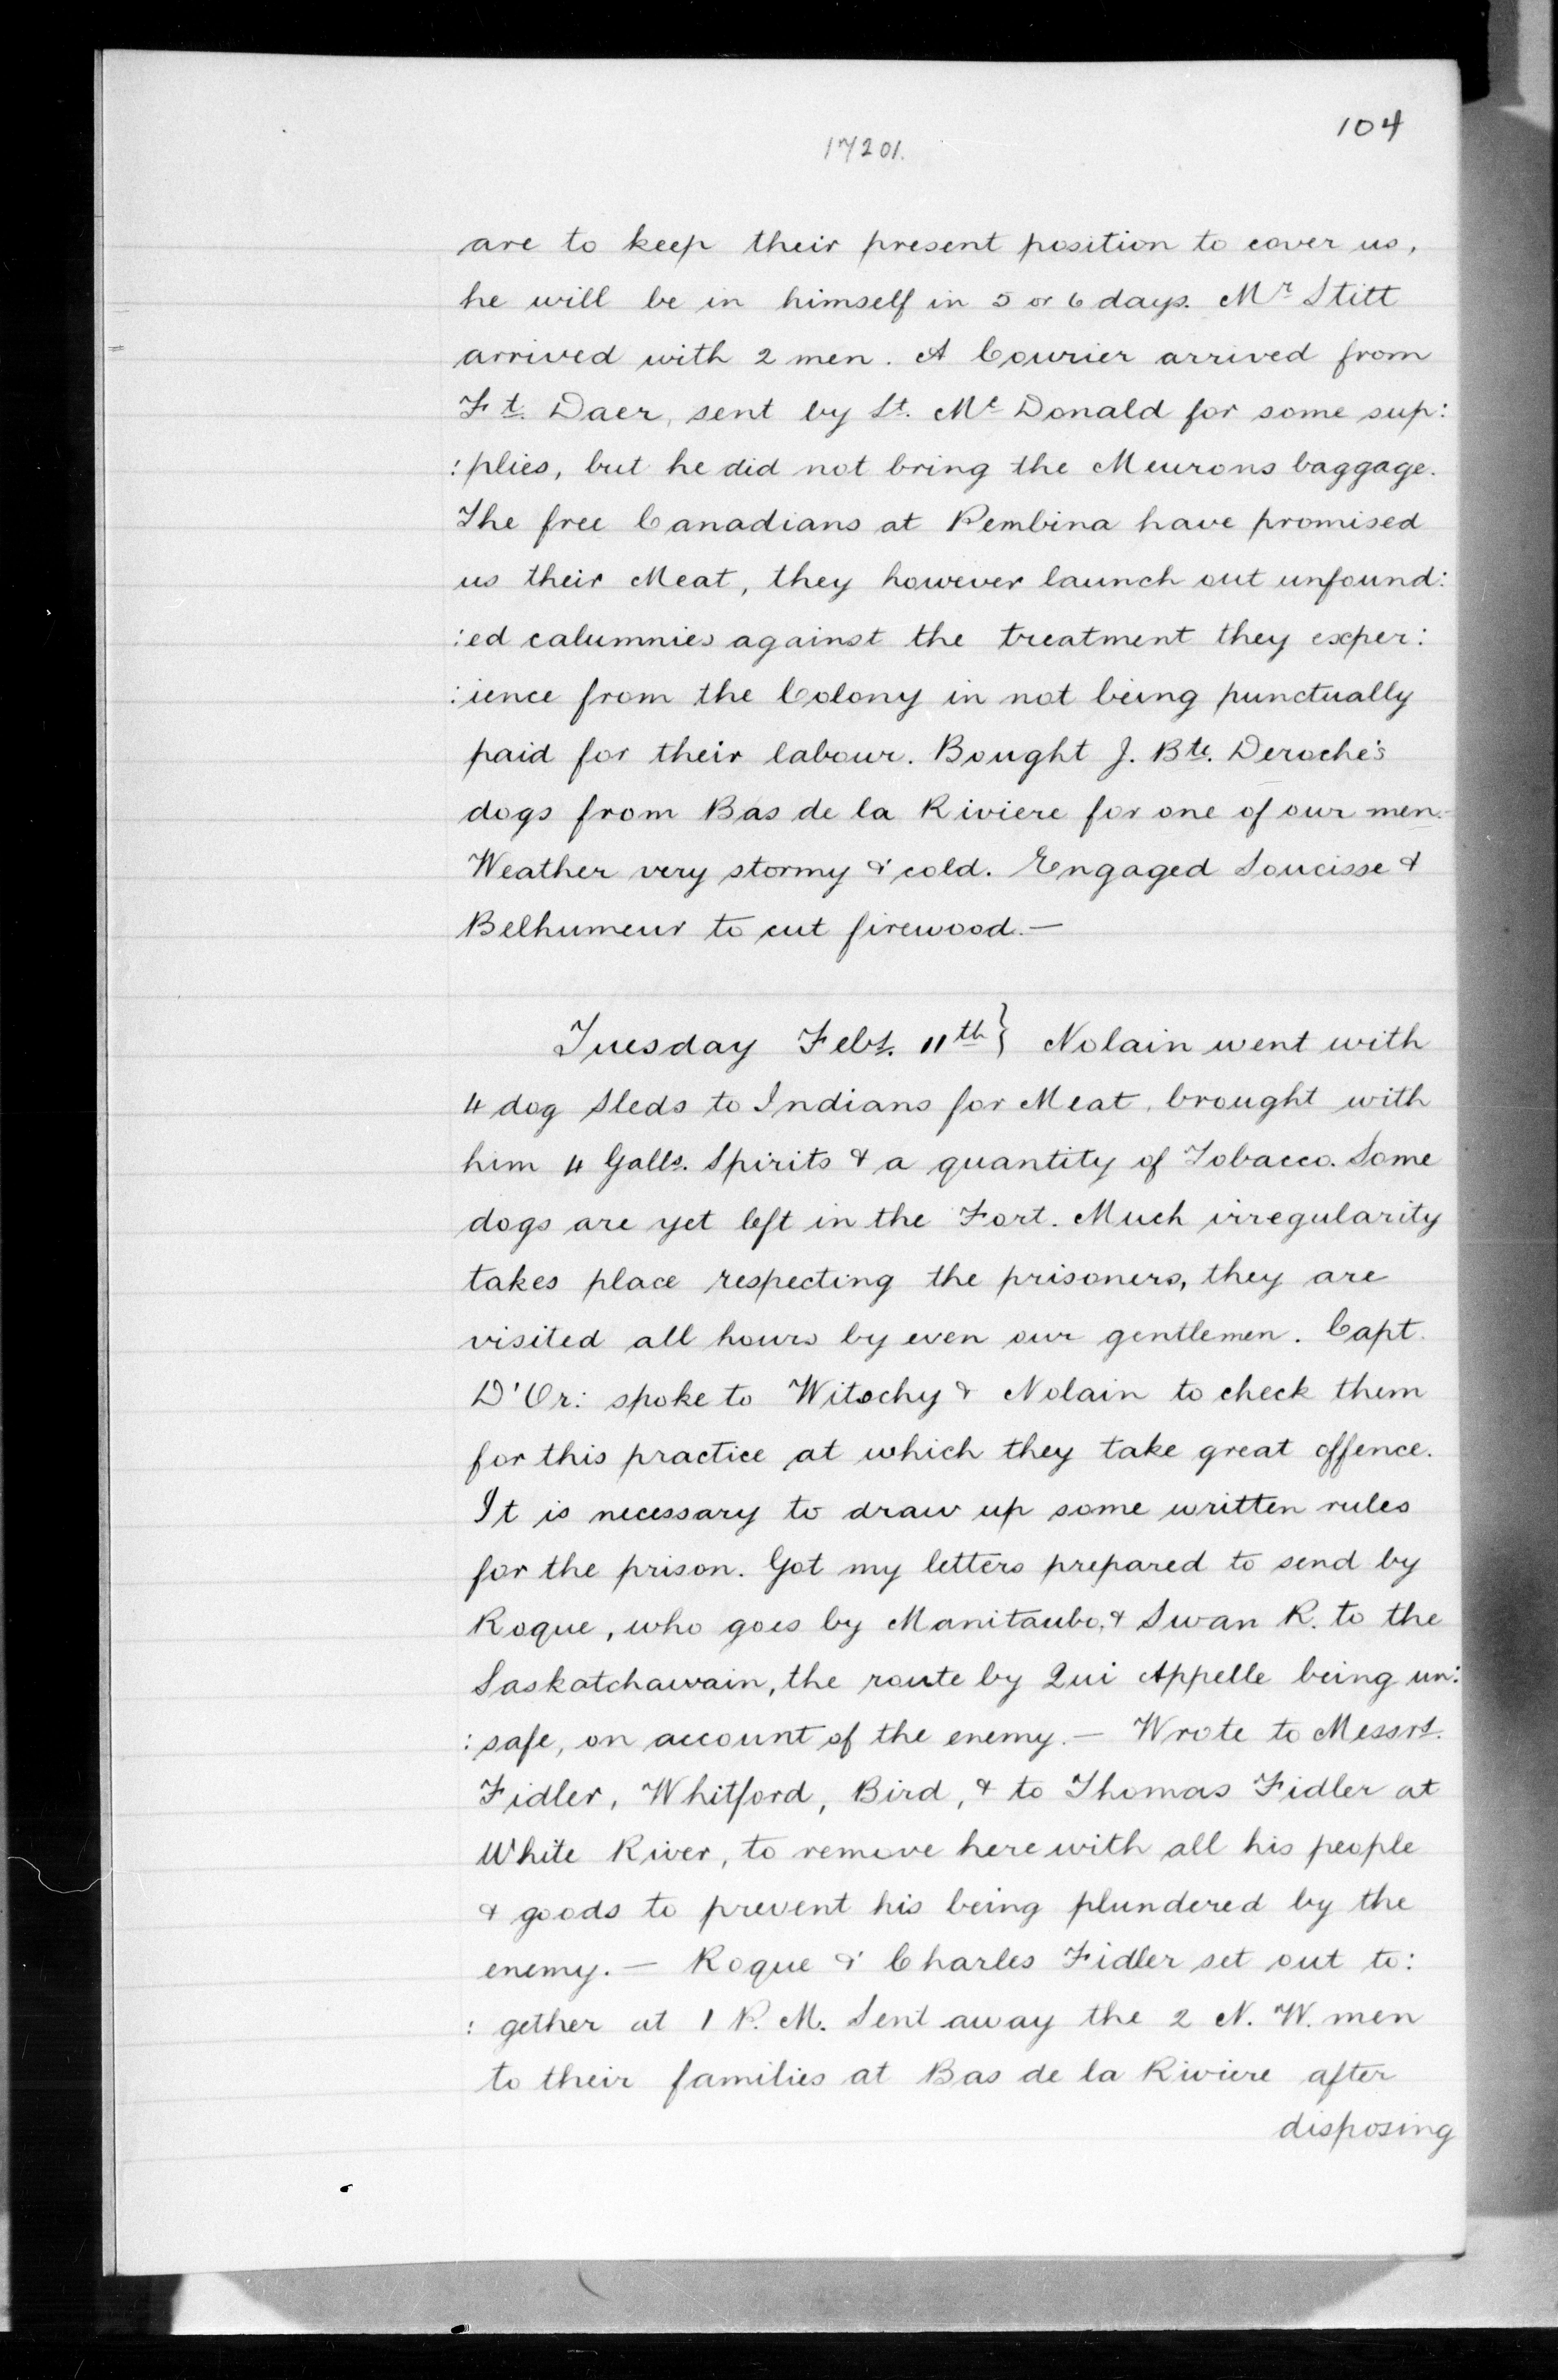 104
17201.
are to keep their present position to cover us,
he will be in himself in 5 or 6 days. Mr Stitt
arrived with 2 men. A Courier arrived from
Ft. Daer, sent by Lt. Mc Donald for some sup:
:plies, but he did not bring the Meurons baggage.
The free Canadians at Pembina have promised
us their Meat, they however launch out unfound:
:ed calumnies against the treatment they exper:
:ience from the Colony in not being punctually
paid for their labour. Bought J. Bte. Deroche's
dogs from Bas de la Riviere for one of our men.-
Weather very stormy & cold. Engaged Soucisse &
Belhumeur to cut firewood.—
Tuesday Feby. 11th} Nolain went with
4 dog sleds to Indians for Meat, brought with
him 4 Galls. Spirits & a quantity of Tobacco. Some
dogs are yet left in the Fort. Much irregularity
takes place respecting the prisoners, they are
visited all hours by even our gentlemen. Capt.
D'Or: spoke to Witschy & Nolain to check them
for this practice at which they take great offence.
It is necessary to draw up some written rules
for the prison. Got my letters prepared to send by
Roque, who goes by Manitaubo, & Swan R. to the
Saskatchawain, the route by Qui Appelle being un:
:safe, on account of the enemy.— Wrote to Messrs.
Fidler, Whitford, Bird, & to Thomas Fidler at
White River, to remove here with all his people
& goods to prevent his being plundered by the
enemy.— Roque & Charles Fidler set out to:
:gether at 1 P. M. Sent away the 2 N. W. men
to their families at Bas de la Riviere after
disposing